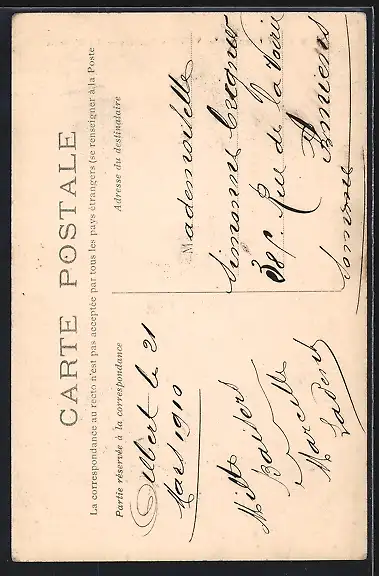 CARTE POSTALE
La correspondance au recto n'est pas acceptée par tous les pays étrangers (se renseigner à la Poste
Partie réservée à la correspondance
Adresse du destinataire
Albert le 21
Mars 1910
Mille
Baisers
Marcelle
Mademoiselle
Simonne
38 Rue de la Voirie
Amiens
Somme